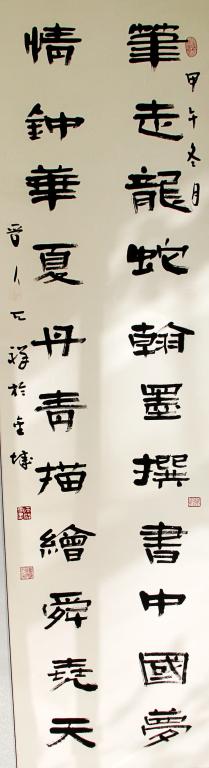 甲午冬月
筆走龍蛇翰墨撰書中國夢
情鈡華夏丹青描繪舜堯天
晋人於金城